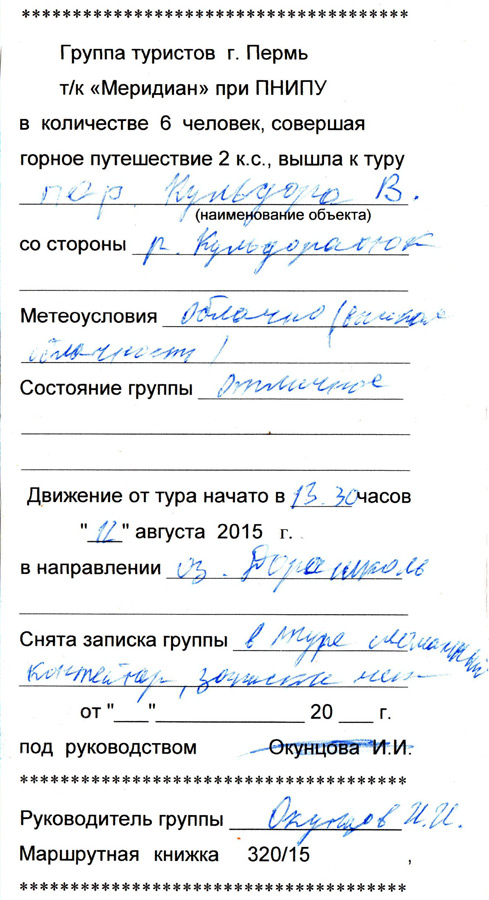 ****************************************
Группа туристов г. Пермь
т/к «Меридиан» при ПНИПУ
в количестве 6 человек, совершая
горное путешествие 2 к.с., вышла к туру
пер Кульдора В.
(наименование объекта)
со стороны р. Кульдораоюк
Метеоусловия облачно (высокая
облачность)
Состояние группы отличное
Движение от тура начато в 13.30 часов
"12" августа 2015 г.
в направлении оз. Дорашколь
Снята записка группы в туре сломанный
контейнер, записки нет
от "___"_____________ 20 ___ г.
под руководством Окунцова И.И.
****************************************
Руководитель группы Окунцов И.И.
Маршрутная книжка 320/15 ,
****************************************